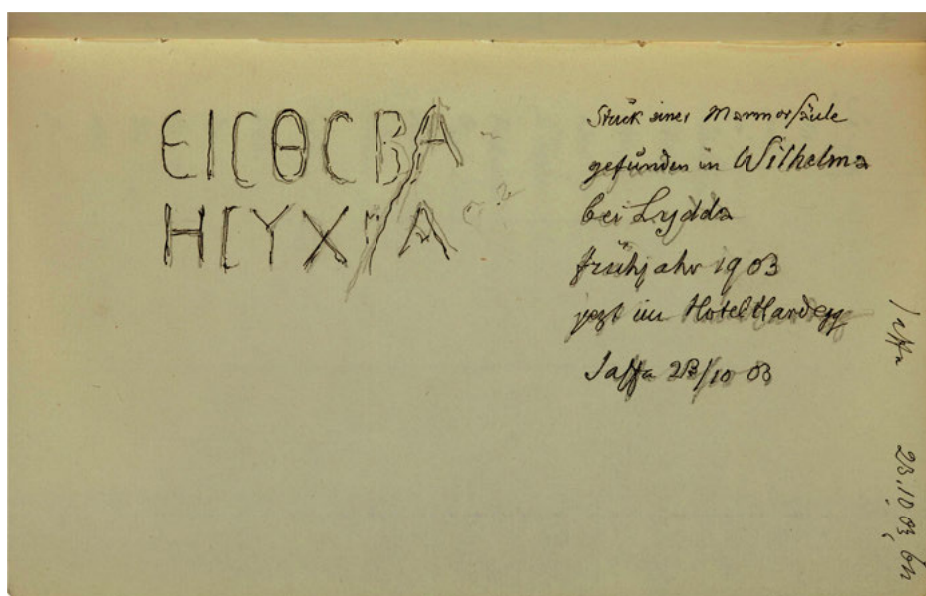 ΕΙCΘCΒΑ
ΗCΥΧΙΑ
Stück einer Marmorsäule
gefunden in Wilhelma
bei Lydda
Frühjahr 1903
jezt im Hotel Hardegg
Jaffa 23/10 03
Jaffa 23.10.03